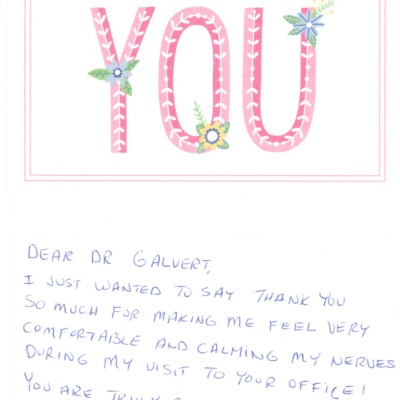 YOU
DEAR DR GALVERT,
I JUST WANTED TO SAY THANK YOU
SO MUCH FOR MAKING ME FEEL VERY
COMFORTABLE AND CALMING MY NERVES
DURING MY VISIT TO YOUR OFFICE!
YOU ARE TRULY